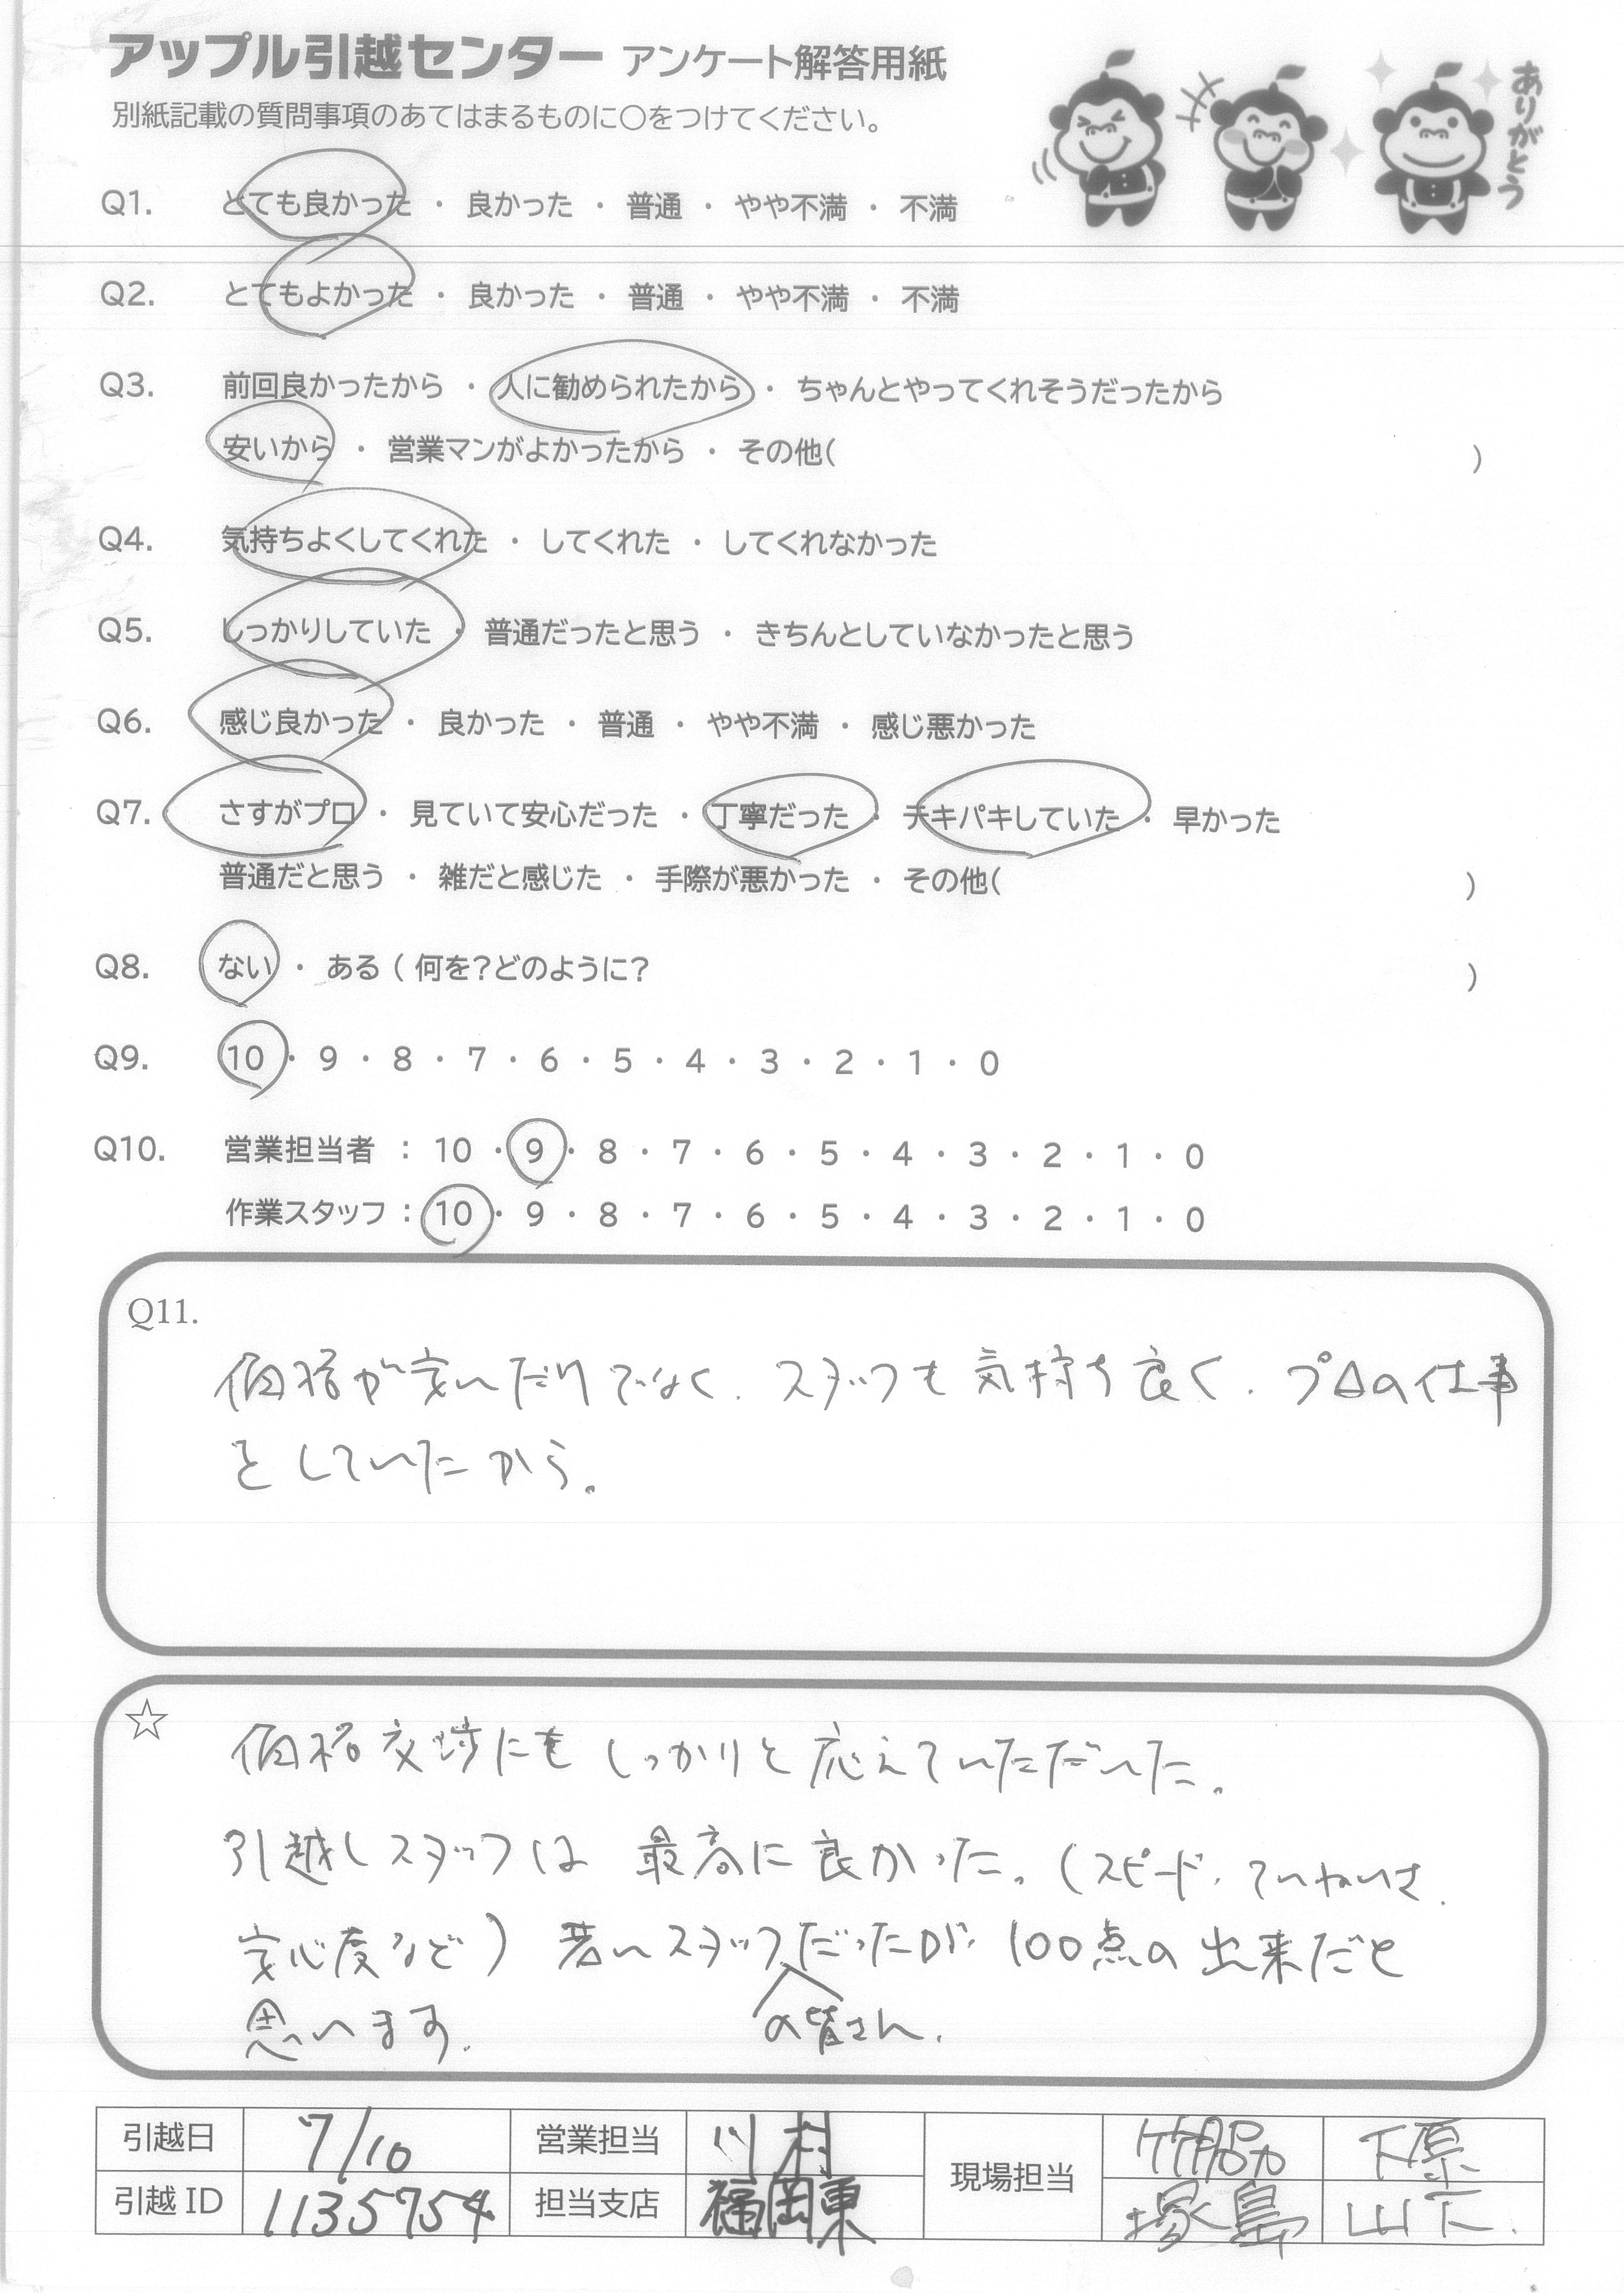 アップル引越センター アンケート解答用紙
別紙記載の質問事項のあてはまるものに○をつけてください。
ありがとう
Q1. とても良かった ・ 良かった ・ 普通 ・ やや不満 ・ 不満
Q2. とてもよかった ・ 良かった ・ 普通 ・ やや不満 ・ 不満
Q3. 前回良かったから ・ 人に勧められたから ・ ちゃんとやってくれそうだったから
安いから ・ 営業マンがよかったから ・ その他( )
Q4. 気持ちよくしてくれた ・ してくれた ・ してくれなかった
Q5. しっかりしていた ・ 普通だったと思う ・ きちんとしていなかったと思う
Q6. 感じ良かった ・ 良かった ・ 普通 ・ やや不満 ・ 感じ悪かった
Q7. さすがプロ ・ 見ていて安心だった ・ 丁寧だった ・ テキパキしていた ・ 早かった
普通だと思う ・ 雑だと感じた ・ 手際が悪かった ・ その他( )
Q8. ない ・ ある ( 何を?どのように? )
Q9. 10 ・ 9 ・ 8 ・ 7 ・ 6 ・ 5 ・ 4 ・ 3 ・ 2 ・ 1 ・ 0
Q10. 営業担当者 : 10 ・ 9 ・ 8 ・ 7 ・ 6 ・ 5 ・ 4 ・ 3 ・ 2 ・ 1 ・ 0
作業スタッフ : 10 ・ 9 ・ 8 ・ 7 ・ 6 ・ 5 ・ 4 ・ 3 ・ 2 ・ 1 ・ 0
Q11.
価格が安いだけでなく、スタッフも気持ち良く、プロの仕事
をしていたから。
☆ 価格交渉にもしっかりと応えていただいた。
引越しスタッフは 最高に良かった。(スピード、ていねいさ、
安心度など) 若いスタッフだったが、100点の出来だと
思います。 の皆さん、
引越日 7/10 営業担当 川村 現場担当 竹脇 下原
引越 ID 1135754 担当支店 福岡東 塚島 山下